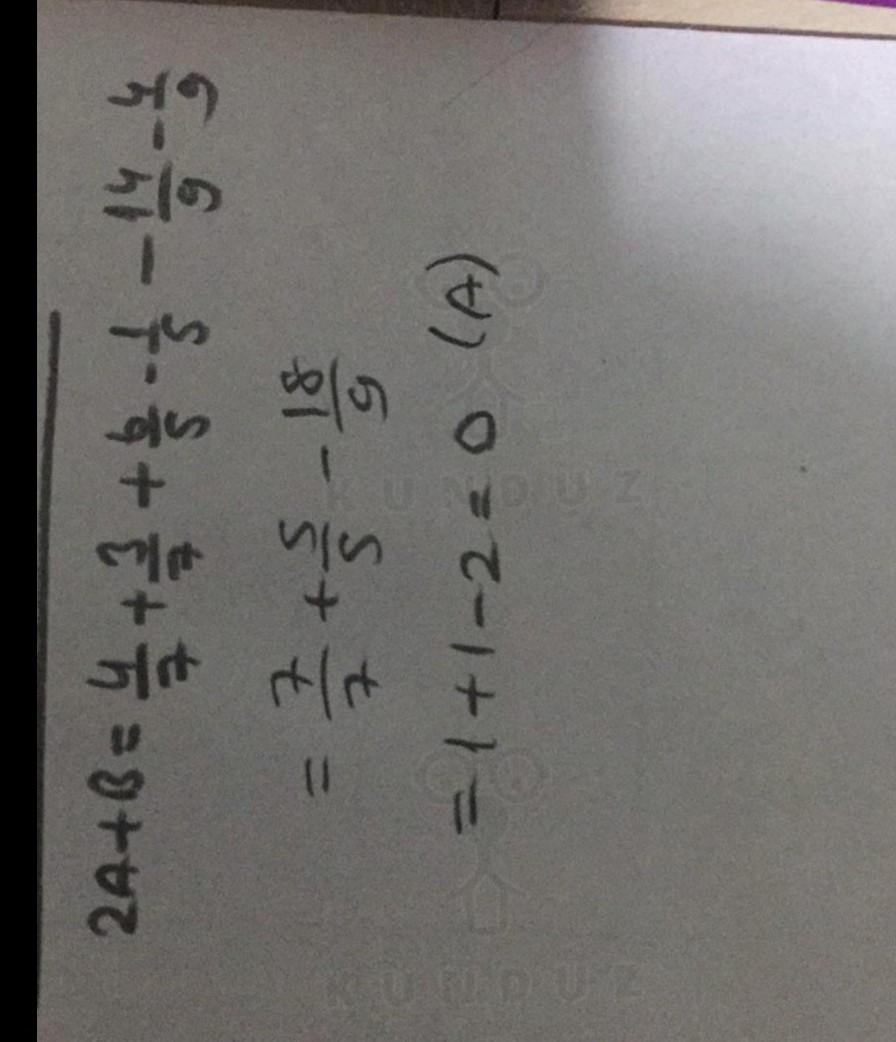 2A+B = 4/7 + 3/7 + 6/5 - 1/5 - 14/9 - 4/9
= 7/7 + 5/5 - 18/9
= 1 + 1 - 2 = 0 (A)
KUNDUZ
KUNDUZ